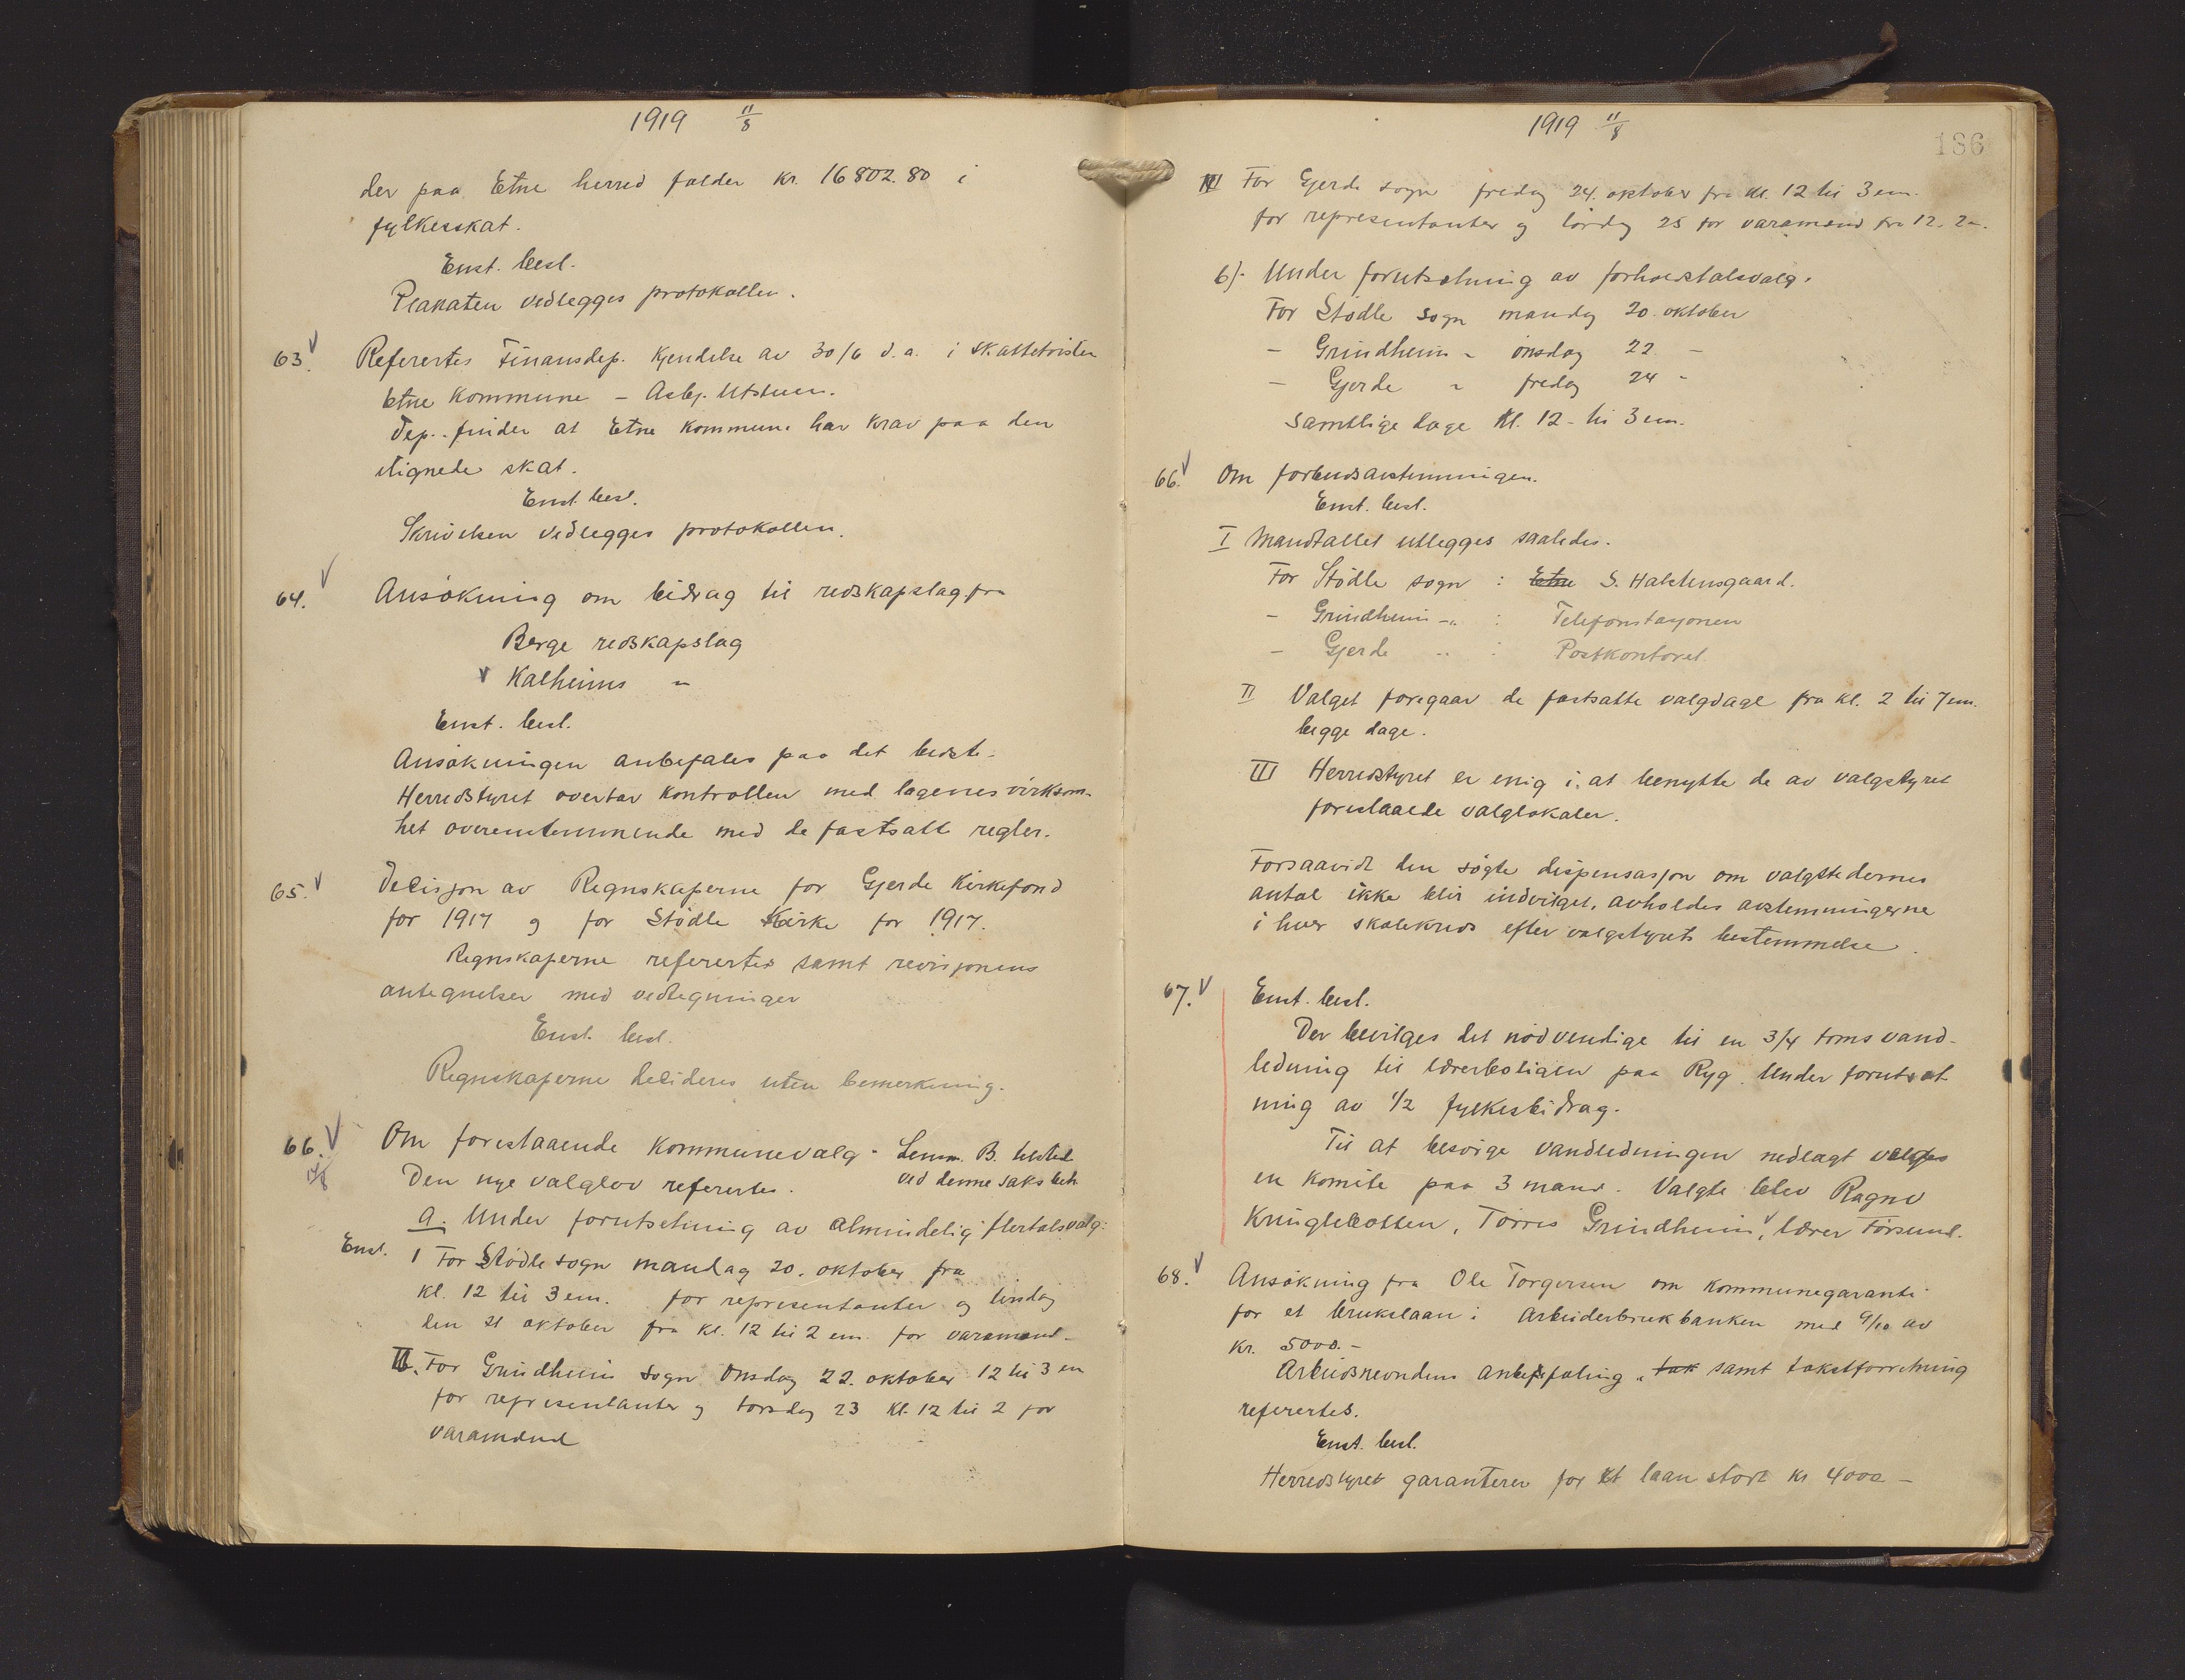 1919 11/8
der paa Etne herred falder kr. 16802.80 i
fylkesskat.
Enst. besl.
Plakaten vedlegges protokollen.
63. Referertes Finansdep. Kjendelse av 30/6 d.a. i skattetvisten
Etne Kommune - Asbj. Utstuen.
Dep. finder at Etne Kommune har krav paa den
ilignede skat.
Enst. besl.
Skrivelsen vedlegges protokollen.
64. Ansökning om bidrag til redskapslag fra
Berge redskapslag
Kalheims "
Enst. besl.
Ansökningen anbefales paa det bedste.
Herredstyret overtar kontrollen med lagenes virksom-
het overenstemmende med de fastsatte regler.
65. Decisjon av Regnskaperne for Gjerde Kirkefond
for 1917 og for Stödle Kirke for 1917.
Regnskaperne referertes samt revisjonens
antegnelser med vedtegninger
Enst. besl.
Regnskaperne decideres uten bemerkning.
66. Om forestaaende kommunevalg. Lensm. B.
14/8 Den nye valglov referertes. ved denne saks beh
a. Under forutsetning av almindelig flertalsvalg:
Enst. I For Stödle sogn mandag 20. oktober fra
kl. 12 til 3 em. for representanter og tirsdag
den 21 oktober fra kl. 12 til 2 em. for varamend-
II. For Grindheim sogn Onsdag 22. oktober 12 til 3 em
for representanter og torsdag 23 kl. 12 til 2 for
varamænd
1919 11/8
186
III For Gjerde sogn fredag 24. oktober fra kl. 12 til 3 em.
for representanter og lördag 25 for varamænd fra 12. 2-.
b). Under forutsetning av forholdstalsvalg.
For Stödle sogn mandag 20. oktober
- Grindheim " onsdag 22 -
- Gjerde " fredag 24 -
Samtlige dage kl. 12 - til 3 em.
66. Om forbudsavstemningen.
Enst. besl.
I Mandtallet utlegges saaledes.
For Stödle sogn : Etne S. Halstensgaard.
- Grindheim -"- : Telefonstasjonen
- Gjerde " : Postkontoret.
II Valget foregaar de fastsatte valgdage fra kl. 2 til 7 em.
begge dage.
III Herredstyret er enig i at benytte de av valgstyret
foreslaaede valglokaler.
Forsaavidt den sögte dispensasjon om valgstedernes
antal ikke blir indvilget, avholdes avstemningerne
i hver skolekreds efter valgstyrets bestemmelse.
67. Enst. besl.
Der bevilges det nödvendige til en 3/4 toms vand-
ledning til lærerboligen paa Ryg. Under forutset
ning av 1/2 fylkesbidrag.
Til at besörge vandledningen nedlagt velges
en komite paa 3 mand. Valgte blev Ragnv
Kringlebotten, Törres Grindheim, lærer Försund.
68. Ansökning fra Ole Torgersen om kommunegaranti
for et brukslaan i Arbeiderbrukbanken med 9/10 av
kr. 5000.-
Arbeidsnevndens anbefaling, tak samt takstforretning
referertes.
Enst. besl.
Herredstyret garanterer for et laan stort kr 4000 -